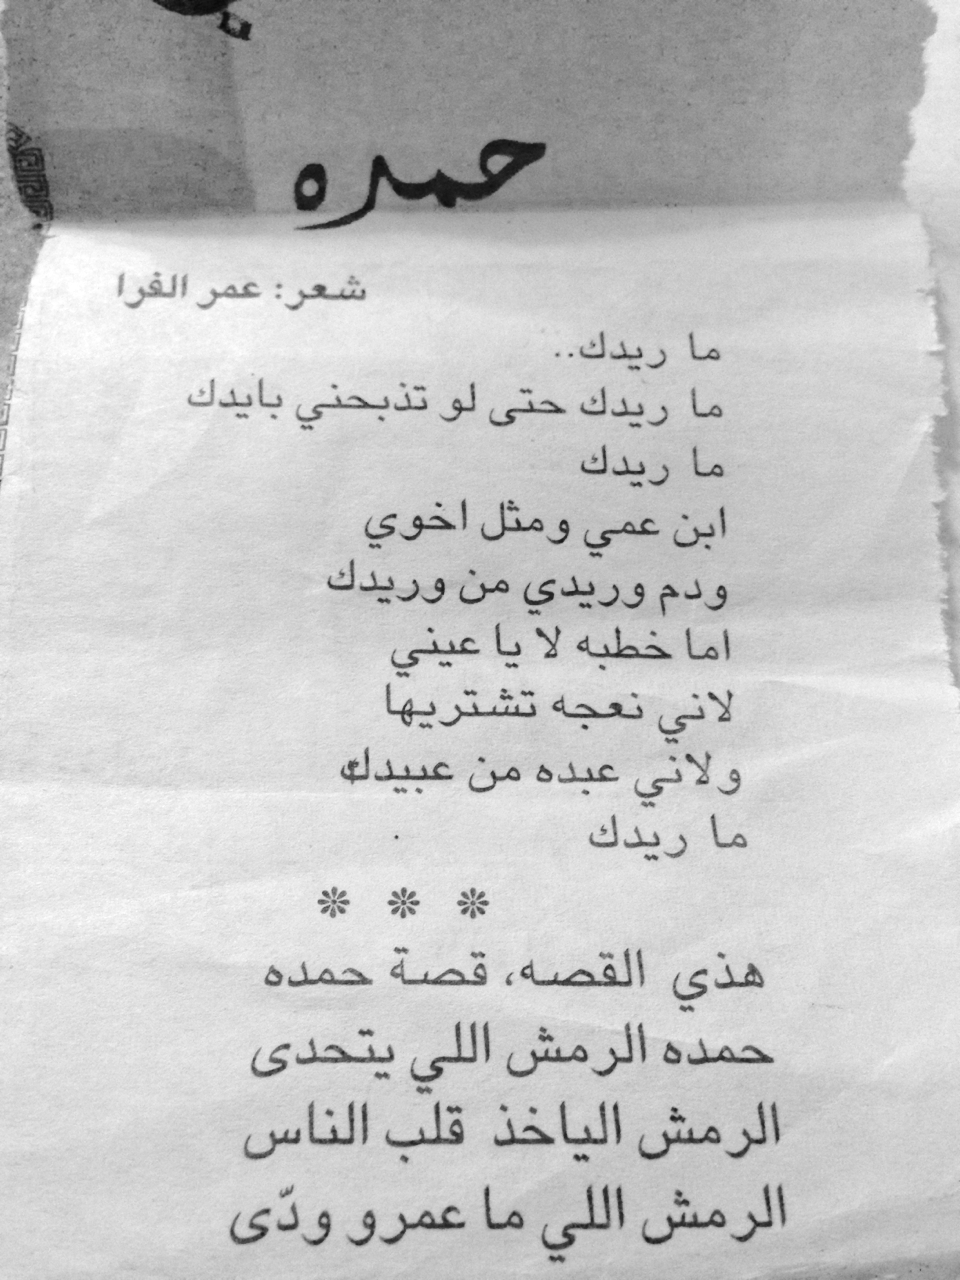 حمده
شعر: عمر الفرا
ما ريدك..
ما ريدك حتى لو تذبحني بايدك
ما ريدك
ابن عمي ومثل اخوي
ودم وريدي من وريدك
اما خطبه لا يا عيني
لاني نعجه تشتريها
ولاني عبده من عبيدك
ما ريدك
هذي القصه، قصة حمده
حمده الرمش اللي يتحدى
الرمش الياخذ قلب الناس
الرمش اللي ما عمرو ودّى